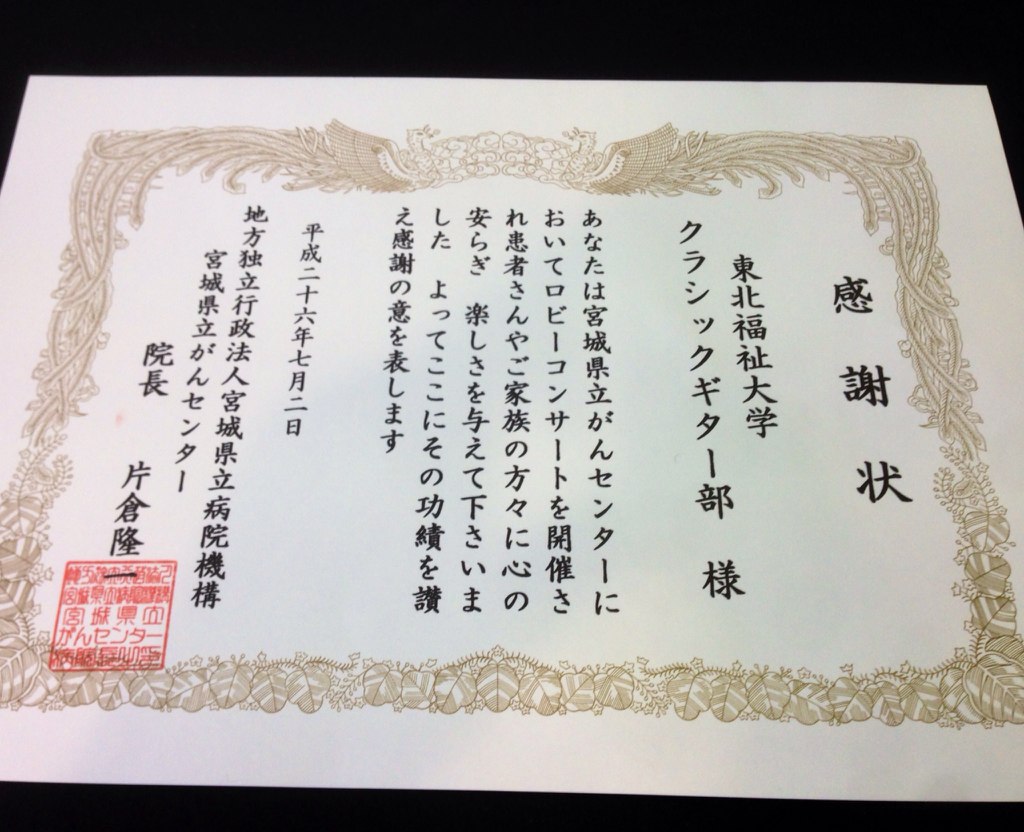 感謝状
東北福祉大学
クラシックギター部 様
あなたは宮城県立がんセンターに
おいてロビーコンサートを開催さ
れ患者さんやご家族の方々に心の
安らぎ 楽しさを与えて下さいま
した よってここにその功績を讃
え感謝の意を表します
平成二十六年七月二日
地方独立行政法人宮城県立病院機構
宮城県立がんセンター
院長 片倉隆一